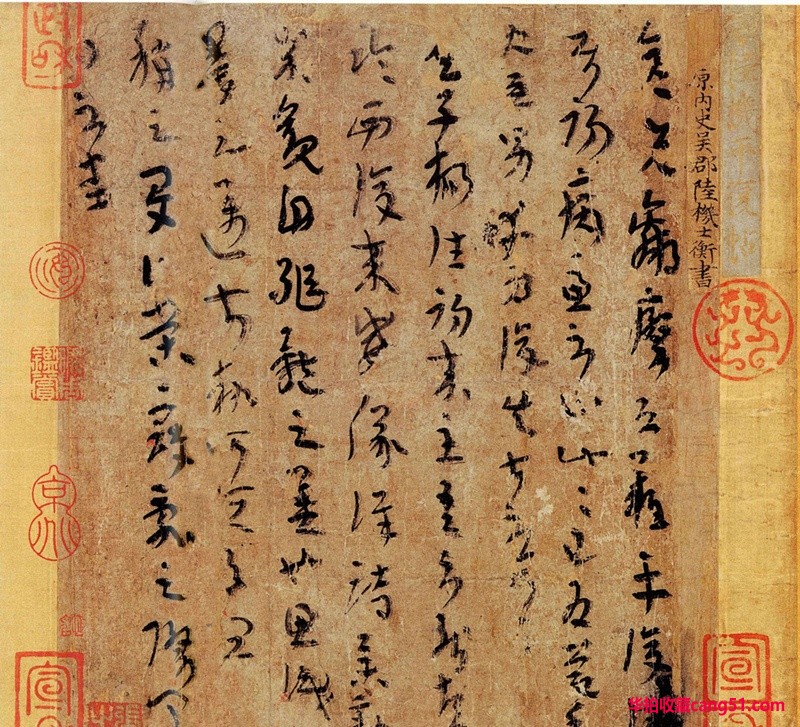 原内史吳郡陸機士衡書
彦先羸瘵恐難平復
往屬初病慮不止此此已為慶承
使唯男幸為復失前憂耳
吳子楊往初來主吾不能盡
臨西復來威儀詳跱舉動
成觀自軀體之美也思識
量之邁前執所恒有宜
稱之夏伯榮寇亂之際聞
問不悉
宣
宣
华拍收藏cang51.com